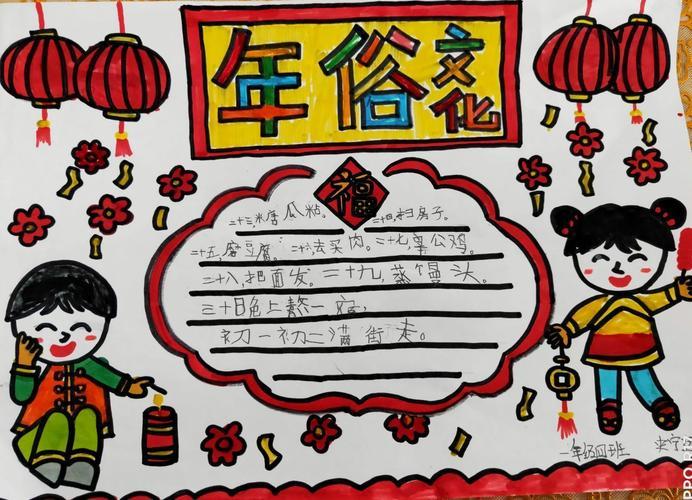 年俗文化
福
二十三,米唐瓜粘。二十四,扫房子。
二十五,磨豆腐。二十六,去买肉。二十七,宰公鸡。
二十八,把面发。三十九,蒸馒头。
三十日色上熬一宿,
初一初二满街走。
一年级四班